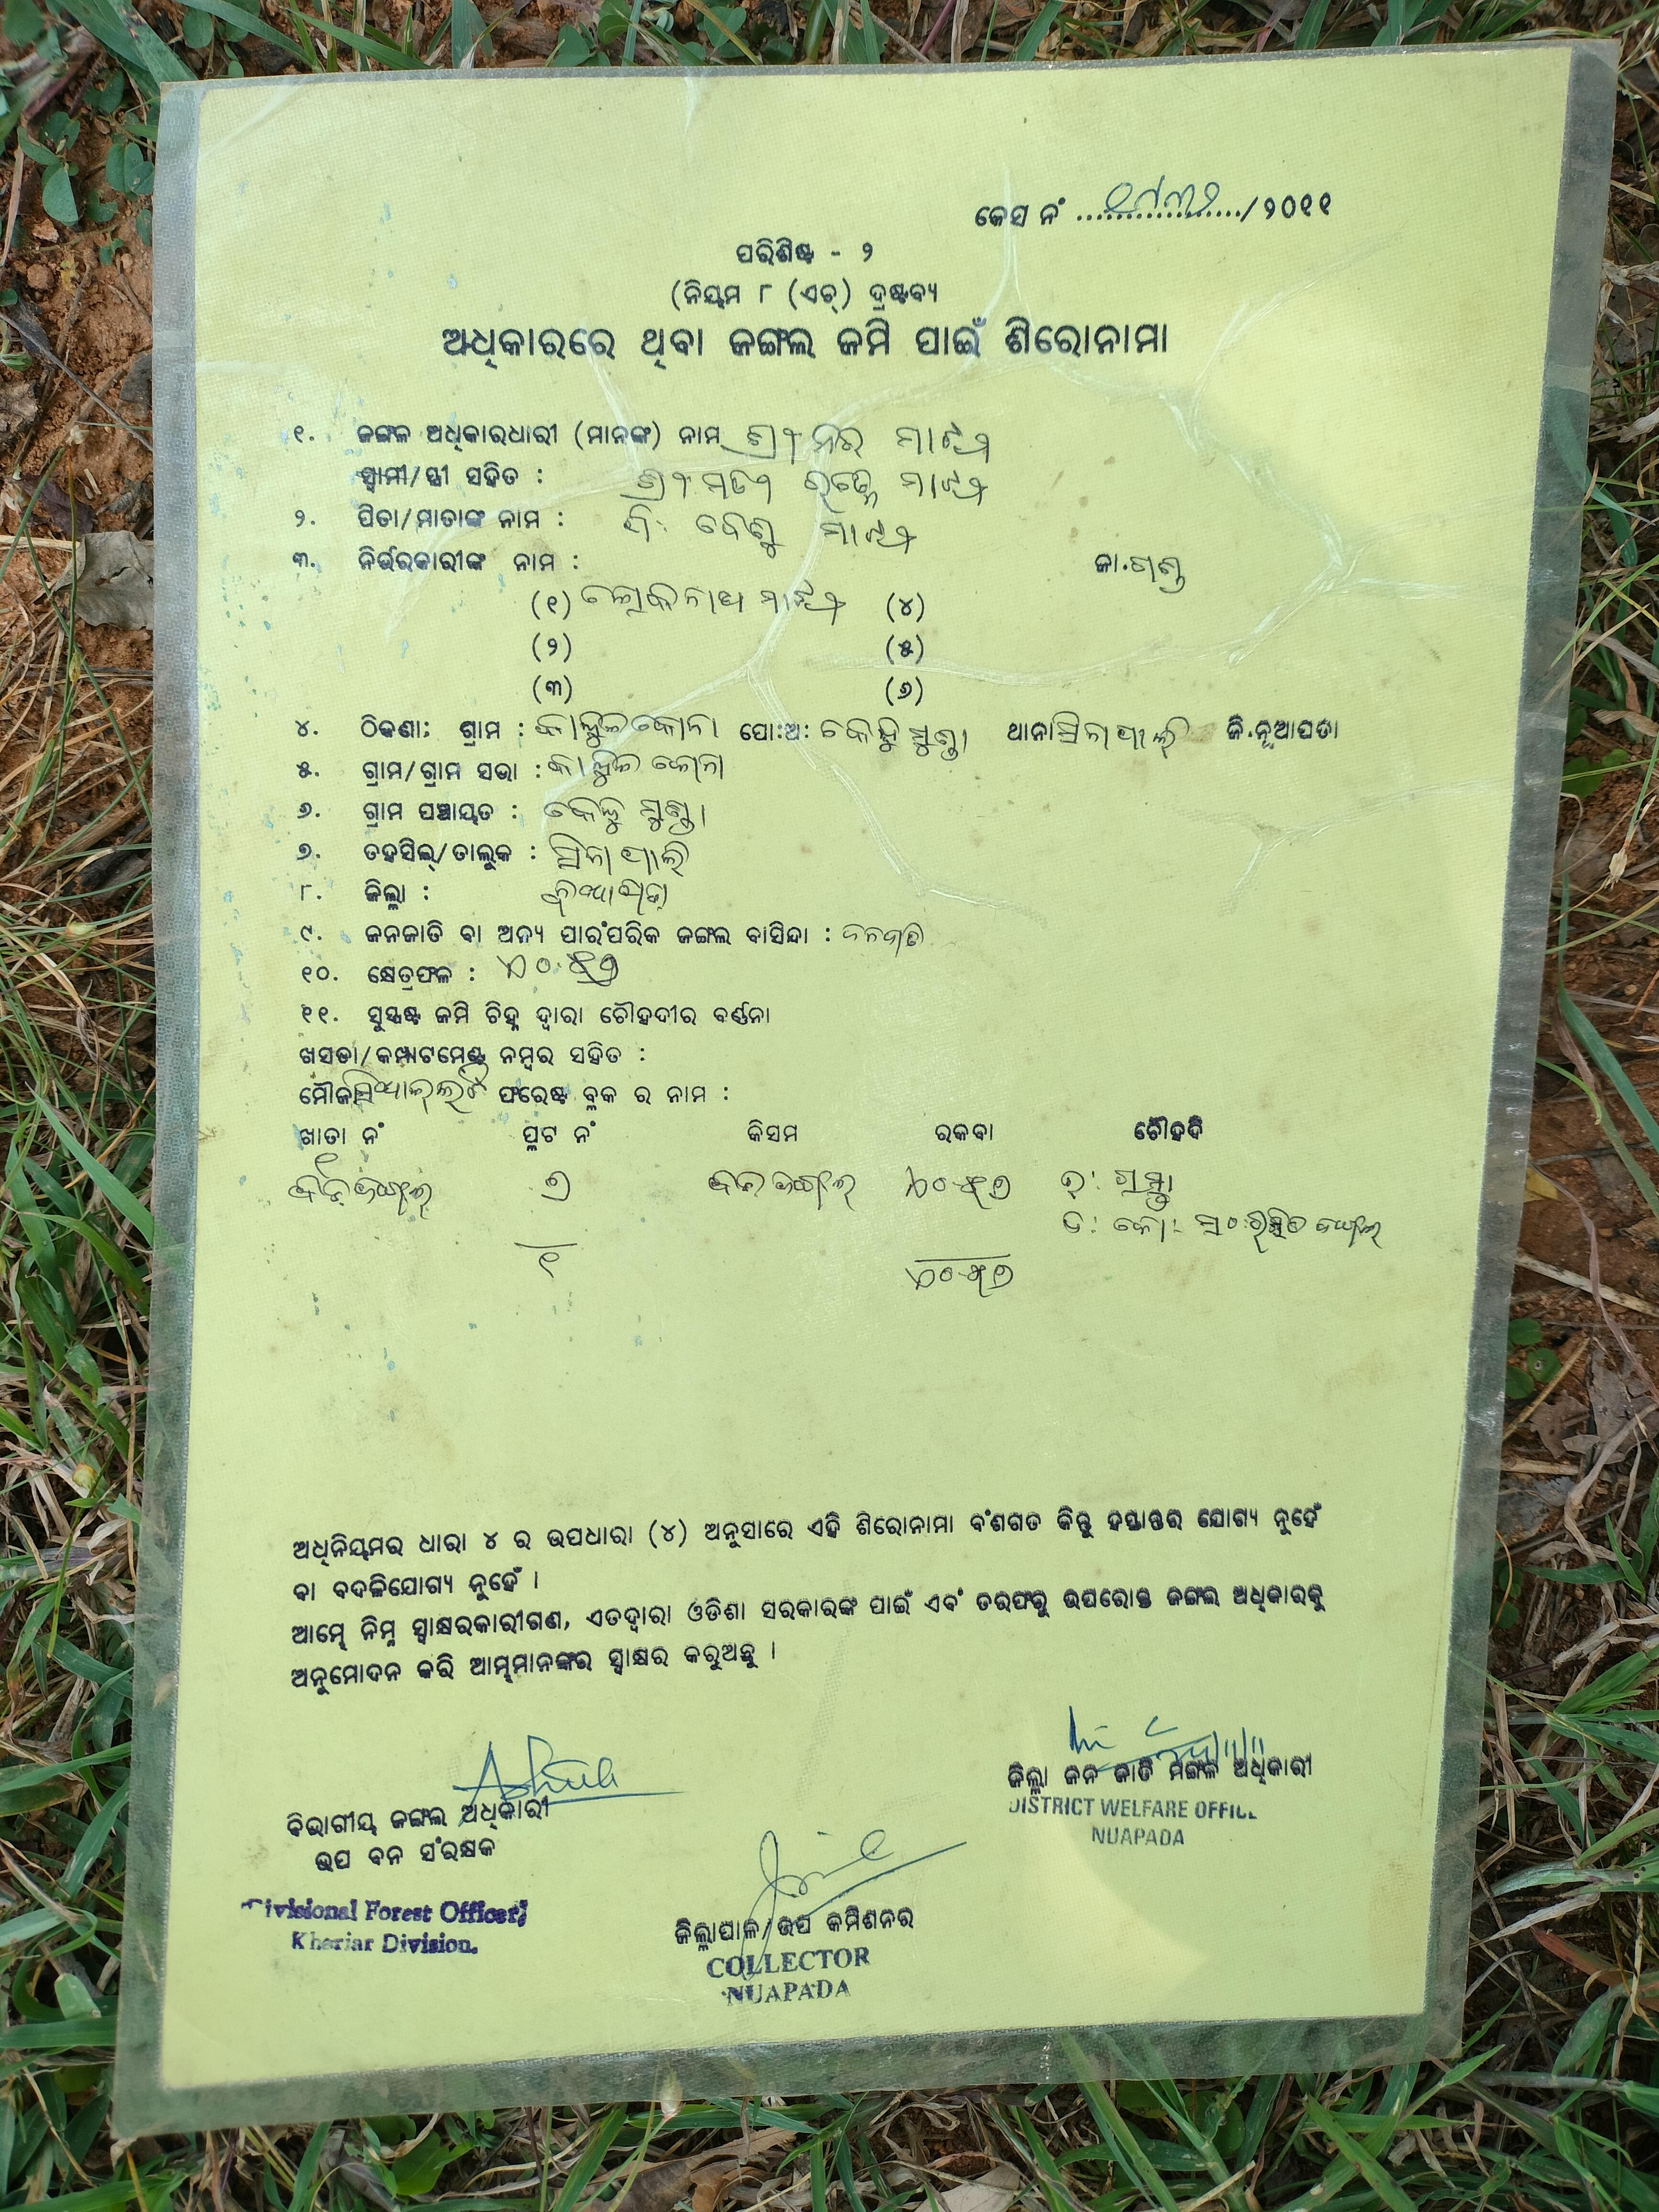 କେସ ନଂ ................/୨୦୧୧
ପରିଶିଷ୍ଟ - ୨
(ନିୟମ ୮ (ଏଚ୍) ଦ୍ରଷ୍ଟବ୍ୟ
ଅଧିକାରରେ ଥିବା ଜଙ୍ଗଲ ଜମି ପାଇଁ ଶିରୋନାମା
୧. ଜଙ୍ଗଳ ଅଧିକାରଧାରୀ (ମାନଙ୍କ) ନାମ ଶ୍ରୀ ମାଝୀ
ସ୍ୱାମୀ/ସ୍ତ୍ରୀ ସହିତ : ଶ୍ରୀମତୀ ମାଝୀ
୨. ପିତା/ମାତାଙ୍କ ନାମ : ମାଝୀ
୩. ନିର୍ଭରକାରୀଙ୍କ ନାମ : ଜା.ଗଣ୍ଡ
(୧) ଲୋକନାଥ ମାଝୀ (୪)
(୨) (୫)
(୩) (୬)
୪. ଠିକଣା: ଗ୍ରାମ : ପୋ:ଅ: କେନ୍ଦୁମୁଣ୍ଡା ଥାନା ସିନାପାଲି ଜି.ନୂଆପଡା
୫. ଗ୍ରାମ/ଗ୍ରାମ ସଭା :
୬. ଗ୍ରାମ ପଞ୍ଚାୟତ : କେନ୍ଦୁମୁଣ୍ଡା
୭. ତହସିଲ୍/ତାଲୁକ : ସିନାପାଲି
୮. ଜିଲ୍ଲା : ନୂଆପଡା
୯. ଜନଜାତି ବା ଅନ୍ୟ ପାରଂପରିକ ଜଙ୍ଗଲ ବାସିନ୍ଦା : ଜନଜାତି
୧୦. କ୍ଷେତ୍ରଫଳ :
୧୧. ସୁସ୍ପଷ୍ଟ ଜମି ଚିହ୍ନ ଦ୍ୱାରା ଚୌହଦୀର ବର୍ଣ୍ଣନା
ଖସଡା/କମ୍ପାଟମେଣ୍ଟ ନମ୍ବର ସହିତ :
ମୌଜା ଫରେଷ୍ଟ ବ୍ଲକ ର ନାମ :
ଖାତା ନଂ ପ୍ଲଟ ନଂ କିସମ ରକବା ଚୌହଦି
୭
ଦ:
୧
ଅଧିନିୟମର ଧାରା ୪ ର ଉପଧାରା (୪) ଅନୁସାରେ ଏହି ଶିରୋନାମା ବଂଶଗତ କିନ୍ତୁ ହସ୍ତାନ୍ତର ଯୋଗ୍ୟ ନୁହେଁ
ବା ବଦଳିଯୋଗ୍ୟ ନୁହେଁ ।
ଆମ୍ଭେ ନିମ୍ନ ସ୍ୱାକ୍ଷରକାରୀଗଣ, ଏତଦ୍ୱାରା ଓଡିଶା ସରକାରଙ୍କ ପାଇଁ ଏବଂ ତରଫରୁ ଉପରୋକ୍ତ ଜଙ୍ଗଲ ଅଧିକାରକୁ
ଅନୁମୋଦନ କରି ଆମ୍ଭମାନଙ୍କର ସ୍ୱାକ୍ଷର କରୁଅଛୁ ।
ଜିଲ୍ଲା ଜନ ଜାତି ମଙ୍ଗଳ ଅଧିକାରୀ
DISTRICT WELFARE OFFICE
NUAPADA
ବିଭାଗୀୟ ଜଙ୍ଗଲ ଅଧିକାରୀ
ଉପ ବନ ସଂରକ୍ଷକ
Divisional Forest Officer,
Khariar Division.
ଜିଲ୍ଲାପାଳ/ଉପ କମିଶନର
COLLECTOR
NUAPADA